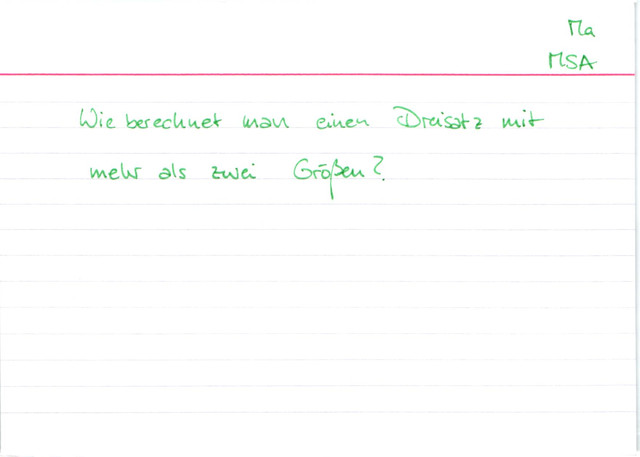 Ma
MSA
Wie berechnet man einen Dreisatz mit
mehr als zwei Größen?